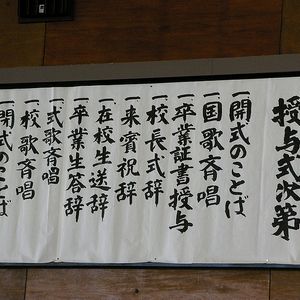 授与式次第
一開式のことば
一国歌斉唱
一卒業証書授与
一校長式辞
一来賓祝辞
一在校生送辞
一卒業生答辞
一式歌斉唱
一校歌斉唱
一閉式のことば